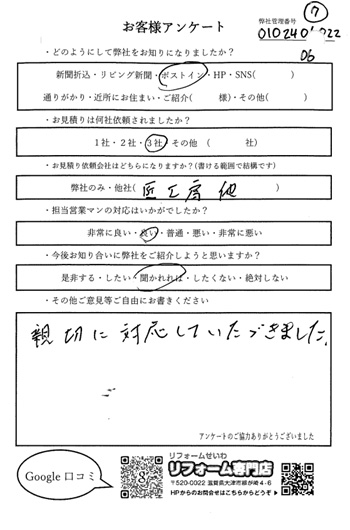 ⑦
お客様アンケート
弊社管理番号
06
・どのようにして弊社をお知りになりましたか？
新聞折込・リビング新聞・ポストイン・HP・SNS(　　　)
通りがかり・近所にお住まい・ご紹介(　　　様)・その他(　　　)
・お見積りは何社依頼されましたか？
1社・2社・3社 その他 （　　　社）
・お見積り依頼会社はどちらになりますか？(書ける範囲で結構です)
弊社のみ・他社( 匠工房 他 )
・担当営業マンの対応はいかがでしたか？
非常に良い・良い・普通・悪い・非常に悪い
・今後お知り合いに弊社をご紹介しようと思いますか？
是非する・したい・聞かれれば・したくない・絶対しない
・その他ご意見等ご自由にお書きください
親切に対応していただきました。
アンケートのご協力ありがとうございました
Google 口コミ
リフォームせいわ
リフォーム専門店
〒520-0022 滋賀県大津市柳が崎4-6
HPからのお問合せはこちらからどうぞ